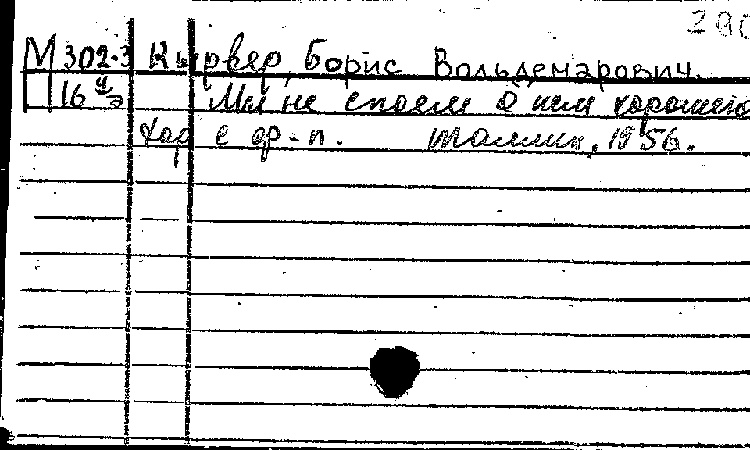 290
М 302.3 Кырвер, Борис Вольдемарович.
16 Мы не споем о нем хорошего
Хор с ф-п. Таллин, 1956.